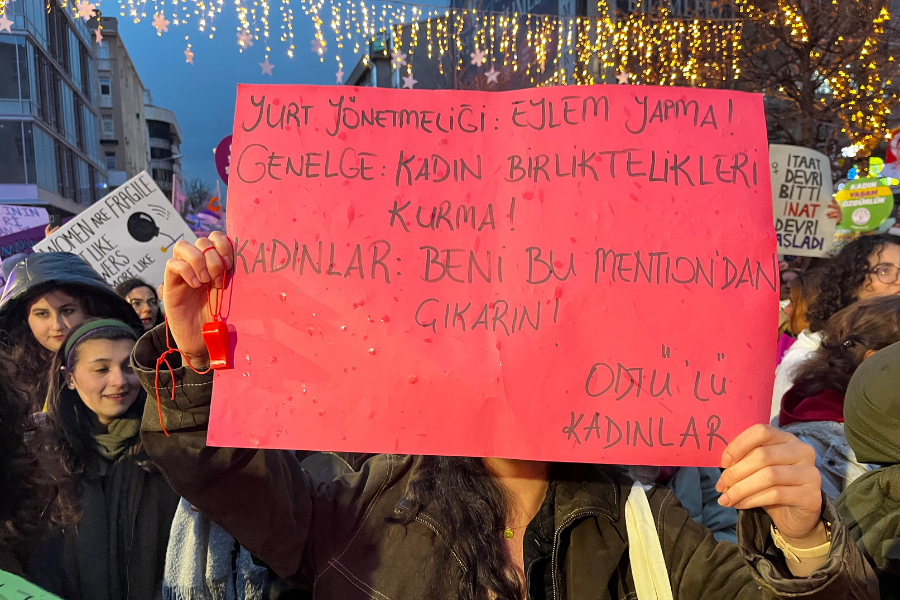 YURT YÖNETMELİĞİ: EYLEM YAPMA!
GENELGE: KADIN BİRLİKTELİKLERİ
KURMA!
KADINLAR: BENİ BU MENTION'DAN
ÇIKARIN!
ODTÜ'LÜ
KADINLAR
WOMEN ARE FRAGILE
LIKE
LIKE
İTAAT
DEVRİ
BİTTİ
İNAT
DEVRİ
BAŞLADI
KADIN
YAŞAM
ÖZGÜRLÜK